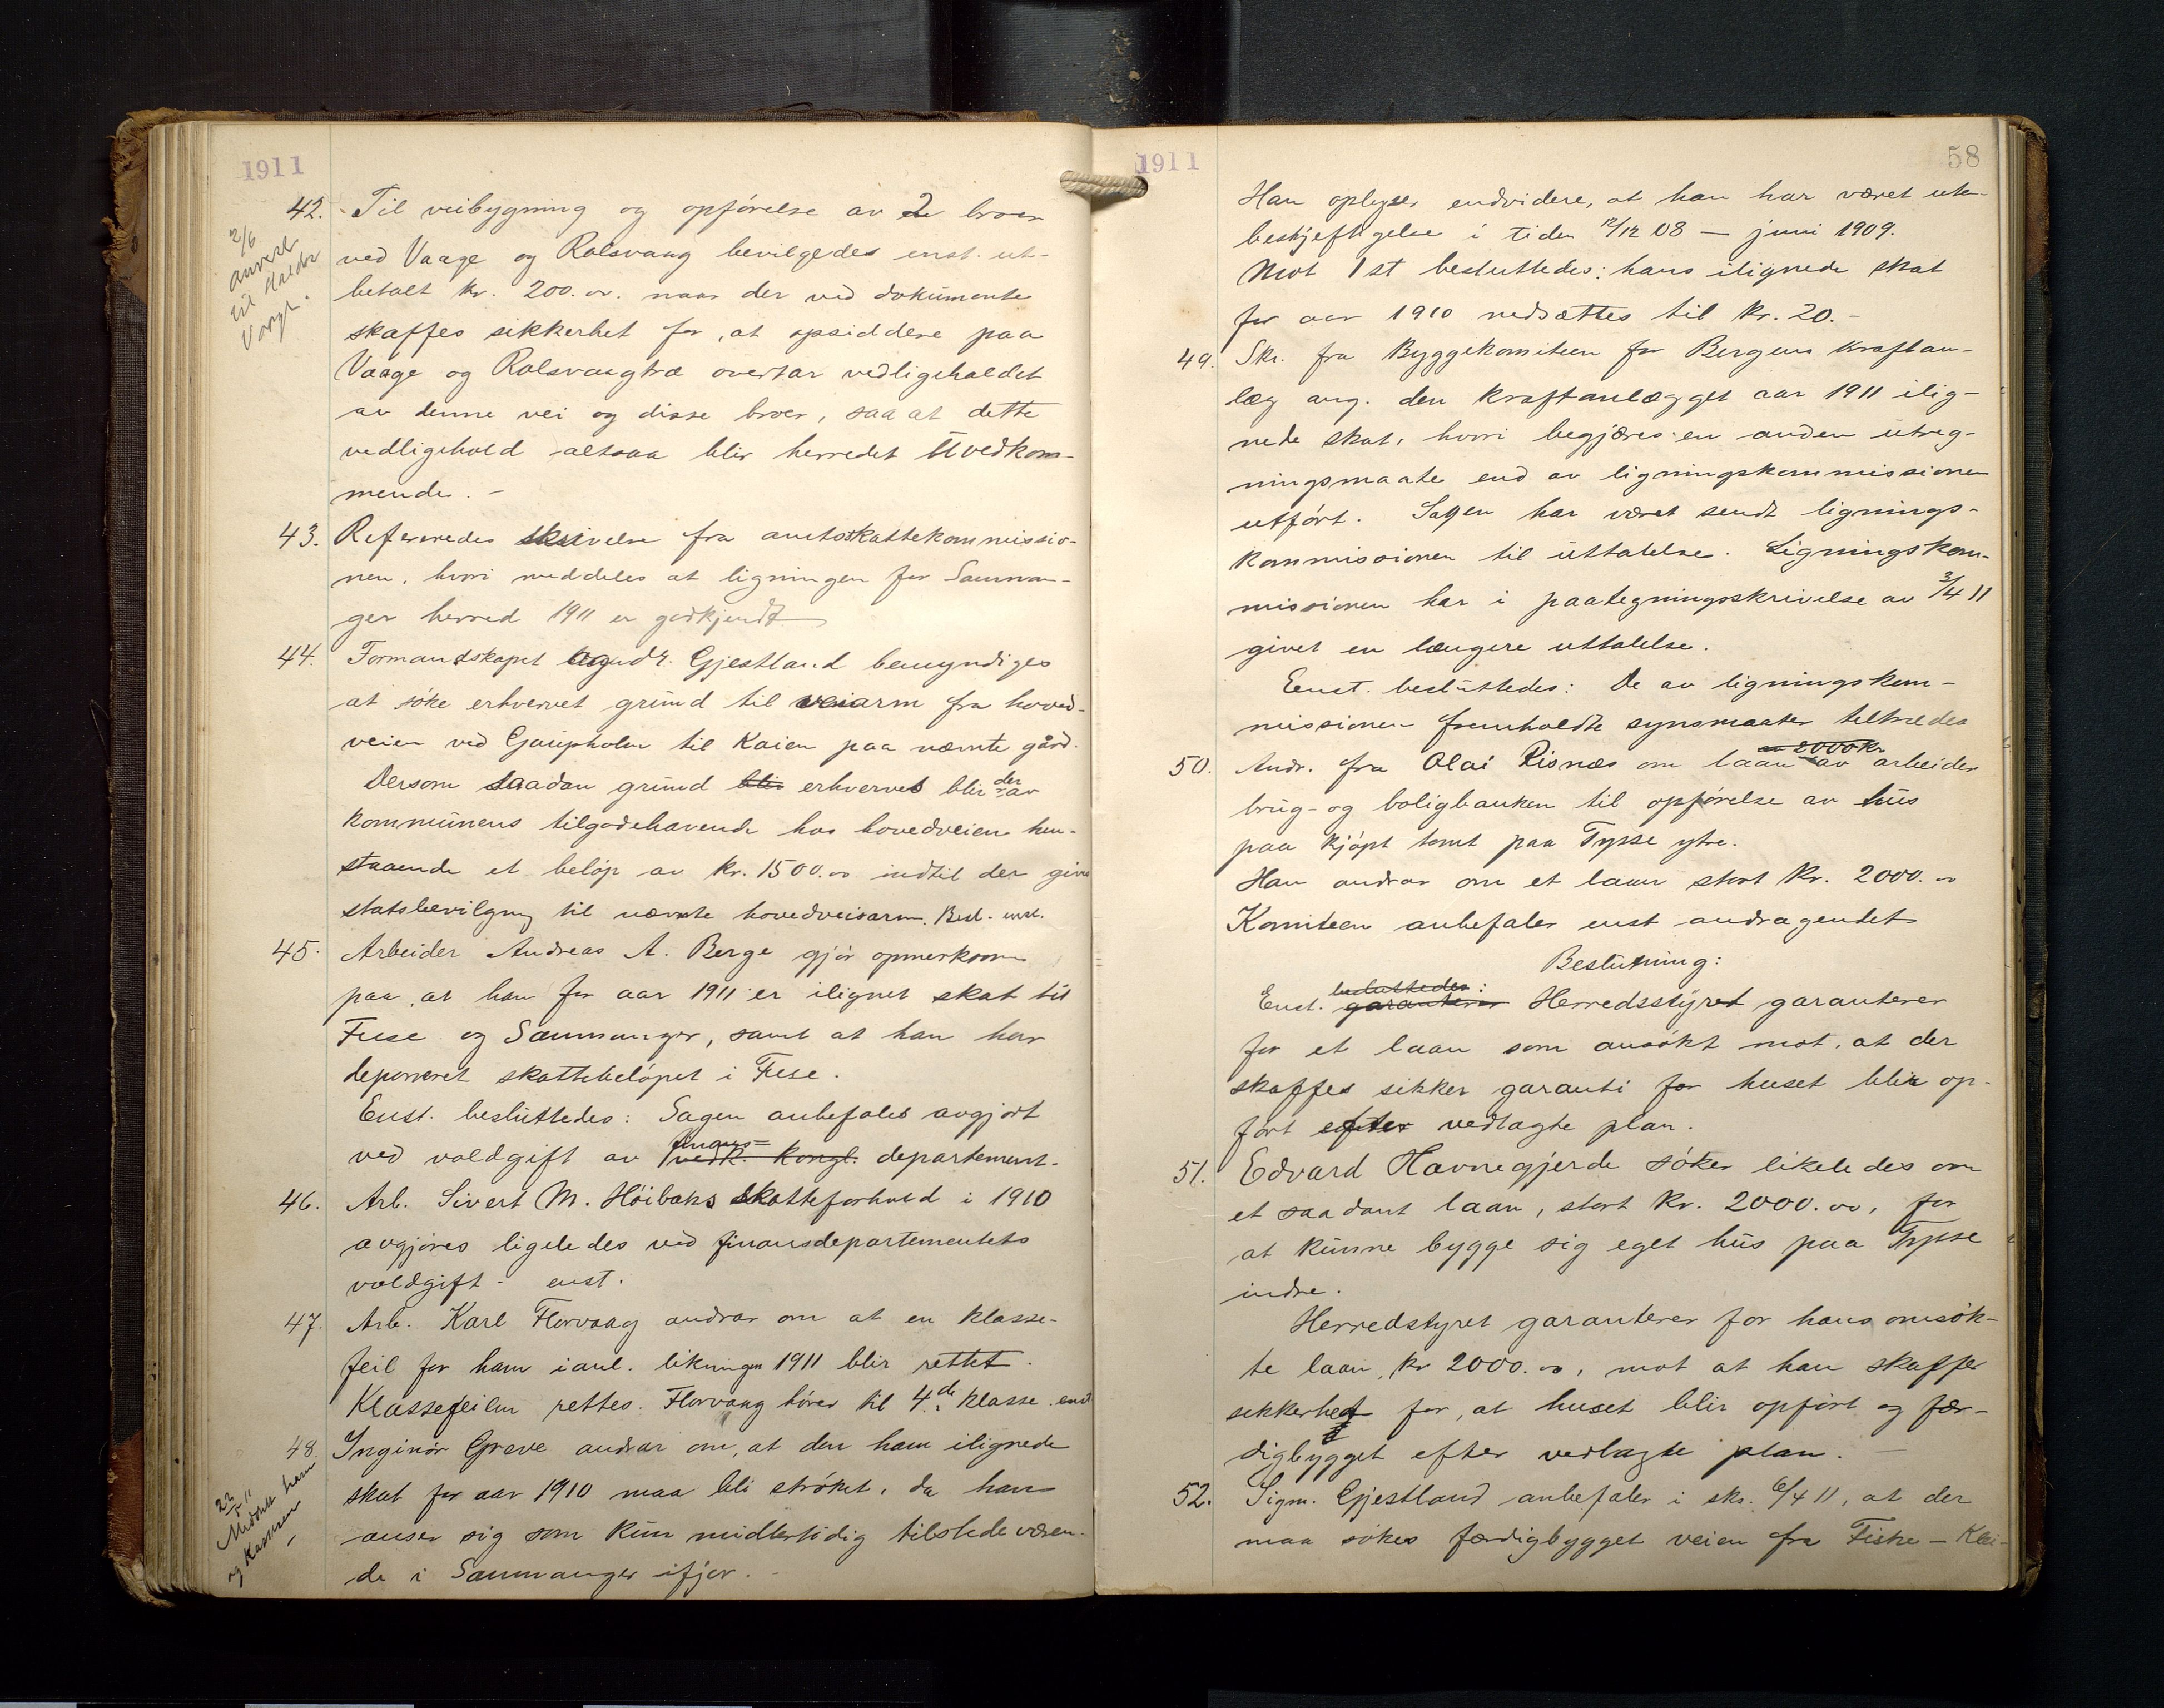 1911
42. Til veibygning og opførelse av 2 broer
2/6
anvist
til
ved Vaage og Rolsvaag bevilgedes enst. ut-
betalt kr. 200.00. naar der ved dokumente
skaffes sikkerhet for, at opsiddere paa
Vaage og Rolsvaag overtar vedligeholdet
av denne vei og disse broer, saa at dette
vedligehold altsaa blir herredet uvedkom-
mende. -
43. Refereredes skrivelse fra amtsskattekommissio-
nen, hvori meddeles at ligningen for Samnan-
ger herred 1911 er godkjendt
44. Formandskapet og Gjestland bemyndiges
at søke erhvervet grund til veiarm fra hoved-
veien ved Gaupholm til Kaien paa nævnte gård.
Dersom saadan grund blir erhvervet blir der av
kommunens tilgodehavende hos hovedveien hen-
staaende et beløp av kr. 1500.00 indtil der give
statsbevilgning til nævnte hovedveisarm. Besl. enst.
45. Arbeider Andreas A. Berge gjør opmerksom
paa, at han for aar 1911 er ilignet skat til
Fuse og Samnanger, samt at han har
deponeret skattebeløpet i Fuse.
Enst. besluttedes: Sagen anbefales avgjort
ved voldgift av vedk. kongl. finans= departement.
46. Arb. Sivert M. Høibaks skatteforhold i 1910
avgjøres ligeledes ved finansdepartementets
voldgift - enst.
47. Arb. Karl Florvaag andrar om at en klasse-
feil for ham i anl. likningen 1911 blir rettet.
Klassefeilen rettes. Florvaag hører til 4de klasse. enst
48. Inginør Greve andrar om, at den ham ilignede
22/5 11
Meddelt ham
og Kassereren
skat for aar 1910 maa bli strøket, da han
anser sig som kun midlertidig tilstedeværen-
de i Samnanger ifjor. -
1911
58
Han oplyser endvidere, at han har været uten
beskjeftigelse i tiden 12/12 08 — juni 1909.
Mot 1 st besluttedes: hans ilignede skat
for aar 1910 nedsættes til kr. 20.-
49. Skr. fra Byggekomiteen for Bergens kraftan-
læg ang. den kraftanlægget aar 1911 ilig-
nede skat, hvori begjæres en anden utreg-
ningsmaate end av ligningskommissionen
utført. Sagen har været sendt lignings-
kommissionen til uttalelse. Ligningskom-
missionen har i paategningsskrivelse av 3/4 11
givet en længere uttalelse.
Enst. besluttedes: De av ligningskom-
missionen fremholdte synsmaater tiltrædes
50. Andr. fra Olai Risnes om laan av 2000 kr av arbeider
brug- og boligbanken til opførelse av hus
paa kjøpt tomt paa Tysse ytre.
Han andrar om et laan stort kr. 2000.00
Komiteen anbefaler enst andragendet
Beslutning:
Enst. garanterer besluttedes: Herredsstyret garanterer
for et laan som ansøkt mot, at der
skaffes sikker garanti for huset blir op-
ført efter vedlagte plan.
51. Edvard Havnegjerde søker likeledes om
et saadant laan, stort kr. 2000.00, for
at kunne bygge sig eget hus paa Tysse
indre.
Herredstyret garanterer for hans omsøk-
te laan, kr 2000.00, mot at han skaffer
sikkerhet for, at huset blir opført og fær-
digbygget efter vedlagte plan. —
52. Sigm. Gjestland anbefaler i skr. 6/4 11, at der
maa søkes færdigbygget veien fra Fiske - Klei-